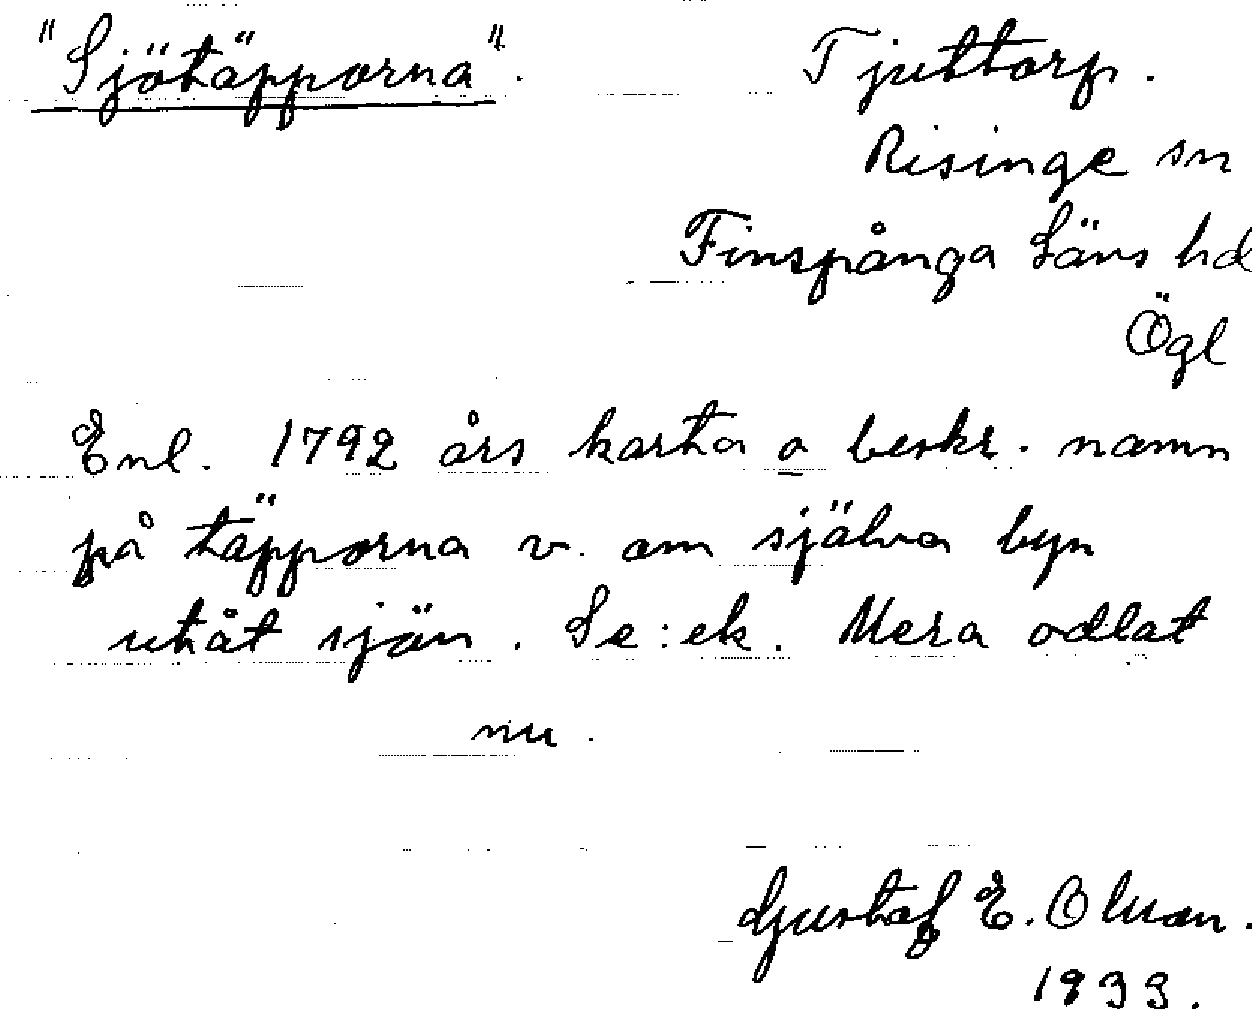 "Sjötäpporna". Tjuttorp.
Risinge sn
Finspånga Läns hd
Ögl
Enl. 1792 års karta o beskr. namn
på täpporna v. om själva byn
utåt sjön. Se: ek. Mera odlat
nu.
Gustaf E. Olsson.
1933.